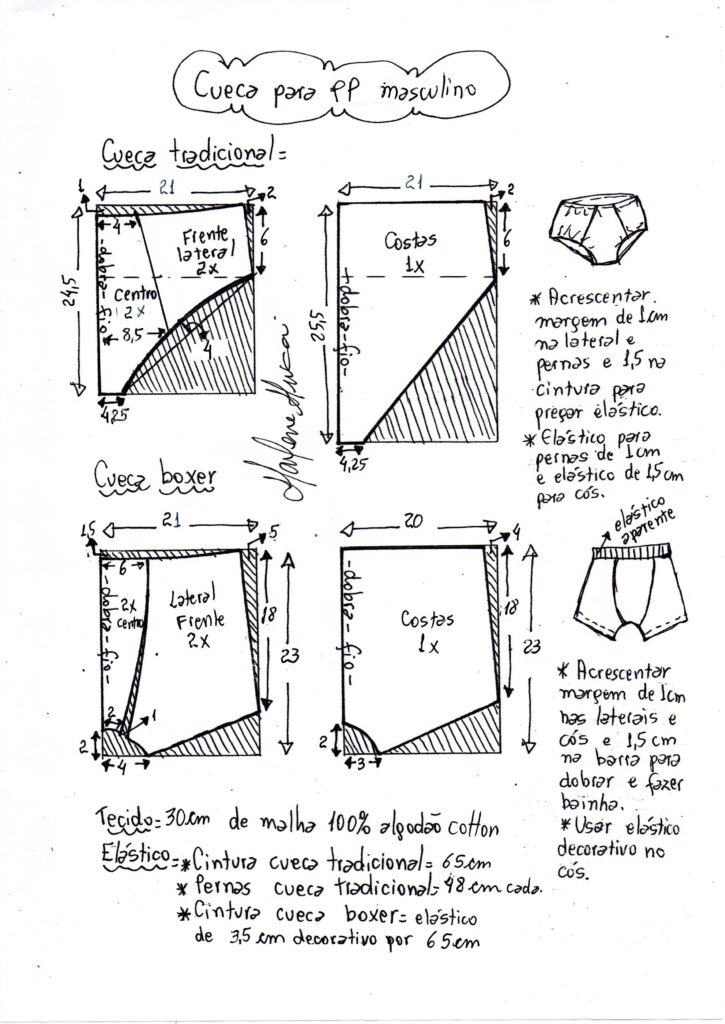 Cueca para PP masculino
Cueca tradicional=
21
1
2
4
6
24,5
Frente
lateral
2x
-dobra-fio-
Centro
2x
8,5
4
4,25
21
2
6
25,5
Costas
1x
-dobra-fio-
4,25
* Acrescentar
margem de 1cm
na lateral e
pernas e 1,5 na
cintura para
pregar elástico.
* Elástico para
pernas de 1cm
e elástico de 1,5cm
para cós.
Marlene Mukai
Cueca boxer
21
1,5
5
6
18
23
2x
centro
-dobra-fio-
Lateral
Frente
2x
2
1
2
4
20
4
18
23
Costas
1x
-dobra-fio-
2
3
elástico
aparente
* Acrescentar
margem de 1cm
nas laterais e
cós e 1,5 cm
na barra para
dobrar e fazer
bainha.
* Usar elástico
decorativo no
cós.
Tecido= 30cm de malha 100% algodão cotton
Elástico=* Cintura cueca tradicional= 65cm
* Pernas cueca tradicional= 48 cm cada.
* Cintura cueca boxer= elástico
de 3,5 cm decorativo por 65cm